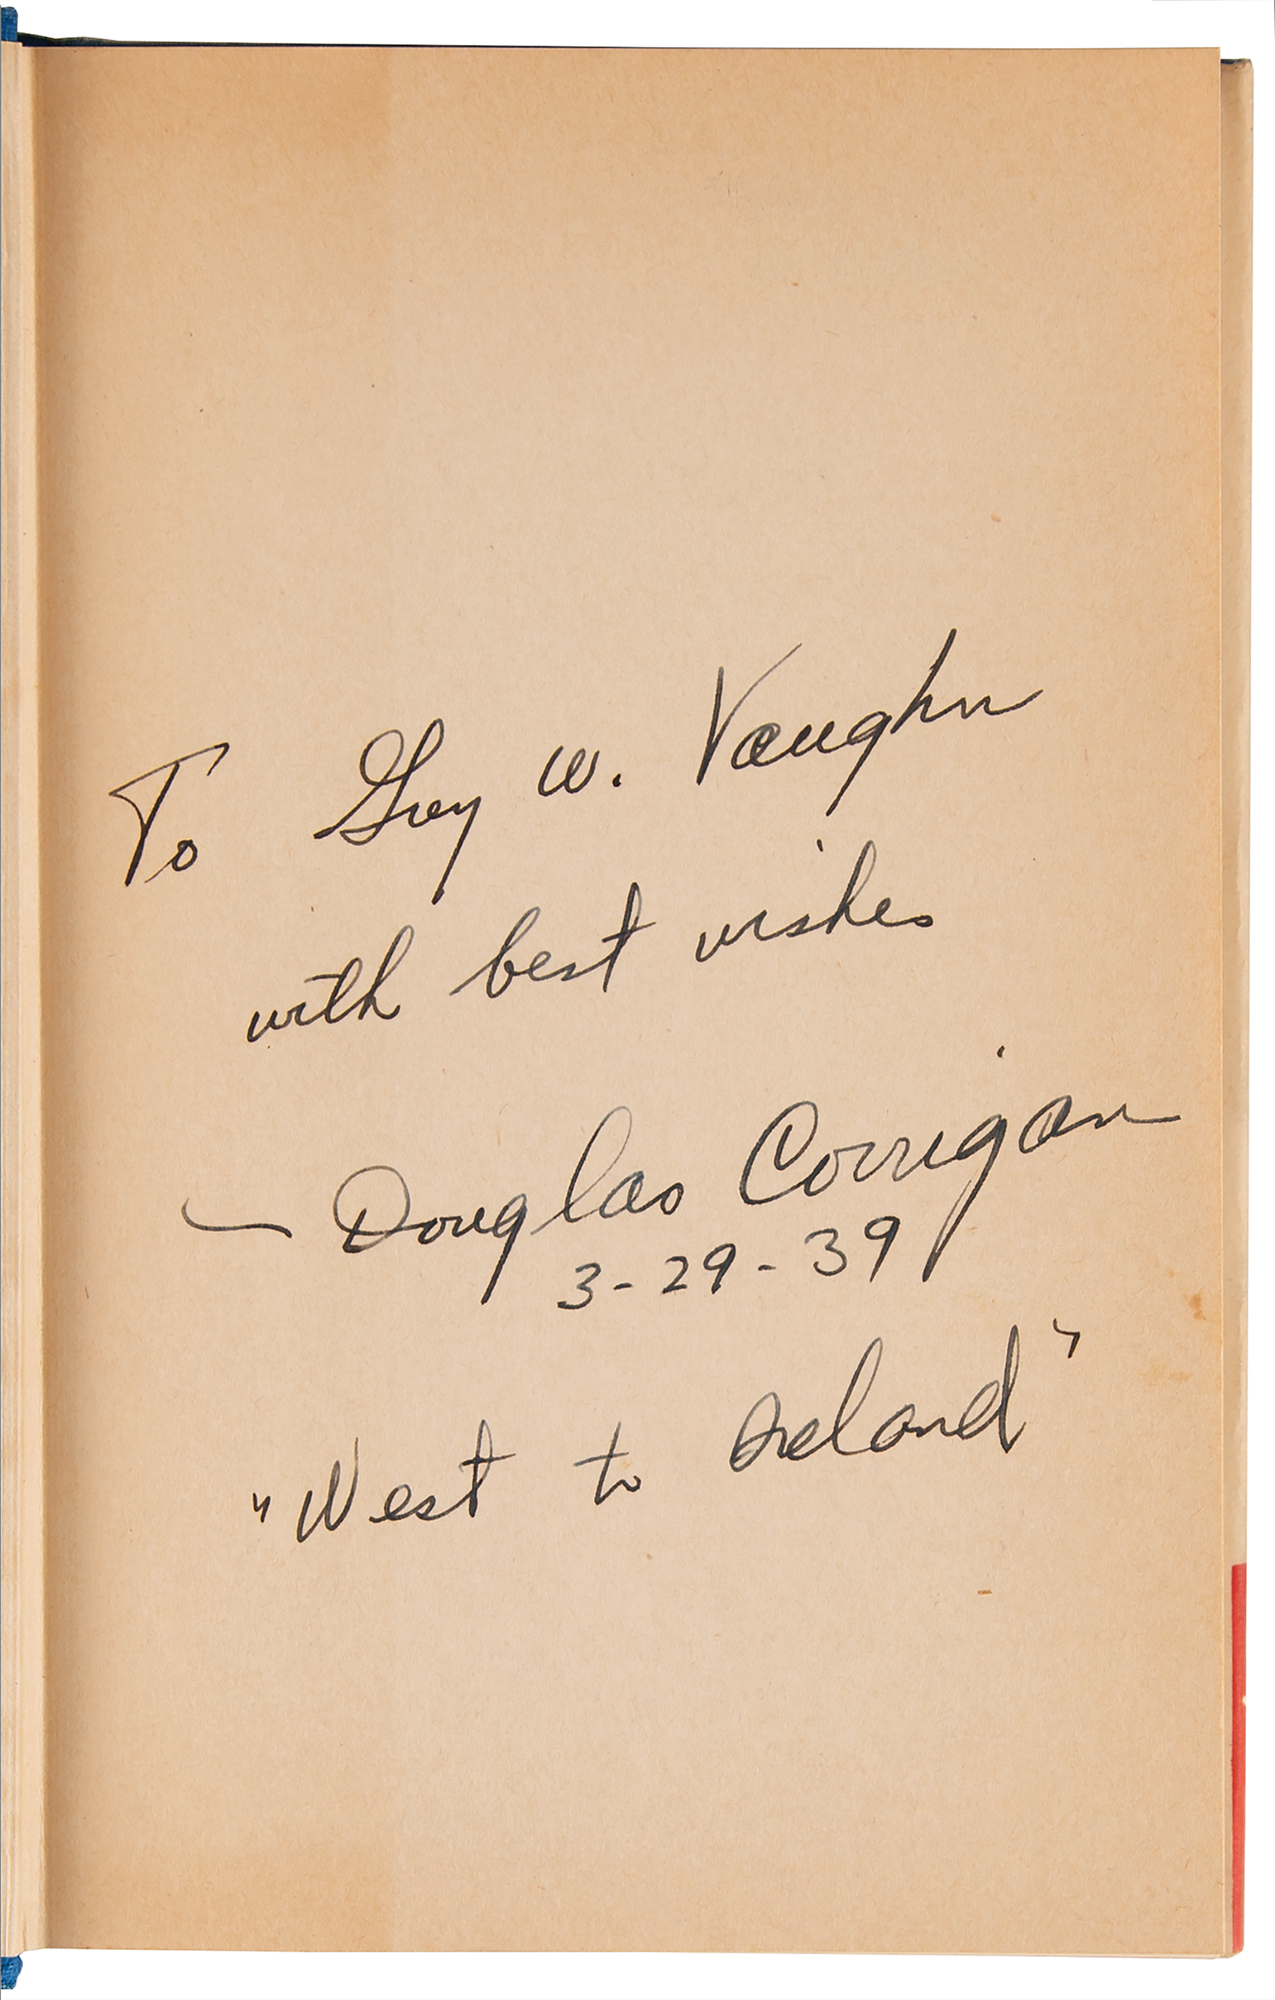 To Guy W. Vaughn
with best wishes
— Douglas Corrigan
3-29-39
"West to Ireland"